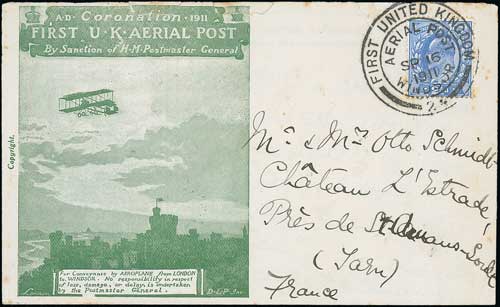 A·D· Coronation ·1911
FIRST U·K·AERIAL POST
By Sanction of H·M·Postmaster General
Copyright.
For Conveyance by AEROPLANE from LONDON
to WINDSOR. No responsibility in respect
of loss, damage, or delay, is undertaken
by the Postmaster General.
FIRST UNITED KINGDOM
AERIAL POST
SP 16
1911
2
Mr & Mrs Otto Schmidt-
Château L'Estrade,
Près de St Amans-Soult
(Tarn)
France